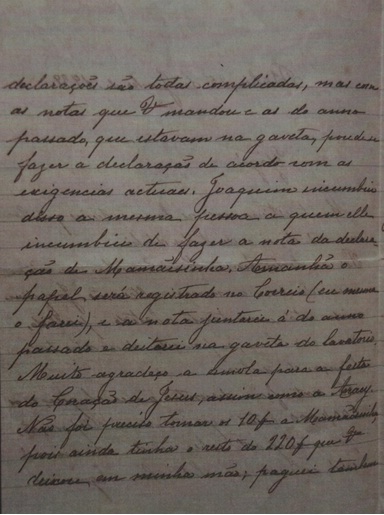 declarações são todas complicadas, mas com
as notas que V mandou e as do anno
passado, que estavam na gaveta, poude-se
fazer a declaração de acordo com as
exigencias actuaes. Joaquim incumbiu
disso a mesma pessoa a quem elle
incumbiu de fazer a nota da declara-
ção de Mamãesinha. Amanhã o
papel será registrado no Correio (eu mesma
o farei), e a nota juntarei á do anno
passado e deitarei na gaveta do
Muito agradeço a esmola para a festa
do Coração de Jesus, assim como a
Não foi preciso tomar os 10f a Mamãesinha,
pois ainda tinha o resto do 220f que V
deixou em minha mão; paguei tambem